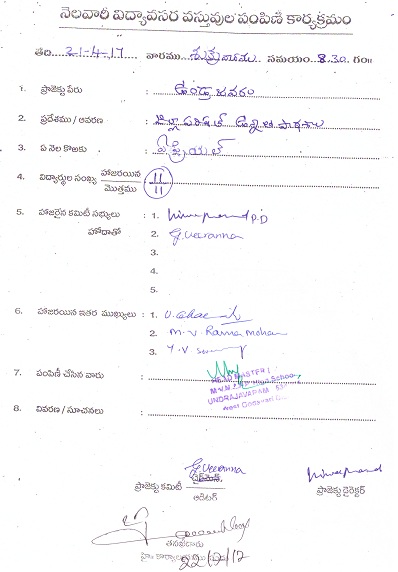 నెలవారీ విద్యావసర వస్తువుల పంపిణీ కార్యక్రమం
తేది. 21-4-17 వారము శుక్రవారము సమయం 8.30 గం॥
1. ప్రాజెక్టు పేరు : ఉండ్రాజవరం
2. ప్రదేశము / ఆవరణ : జిల్లా పరిషత్ ఉన్నత పాఠశాల
3. ఏ నెల కొఱకు : ఏప్రియల్
4. విద్యార్థుల సంఖ్య హాజరయిన / మొత్తము : 11/11
5. హాజరైన కమిటీ సభ్యులు : 1. P.D
హోదాతో 2. G. Veeranna
3.
4.
5.
6. హాజరయిన ఇతర ముఖ్యులు : 1. U.
2. M. V. Rama Mohan
3. Y. V
7. పంపిణీ చేసిన వారు :
HEAD MASTER
M.V.N. School
UNDRAJAVARAM
West Godavari
8. వివరణ / సూచనలు :
G. Veeranna
ప్రాజెక్టు కమిటీ
ఆడిటర్
ప్రాజెక్టు డైరెక్టర్
22/2/17